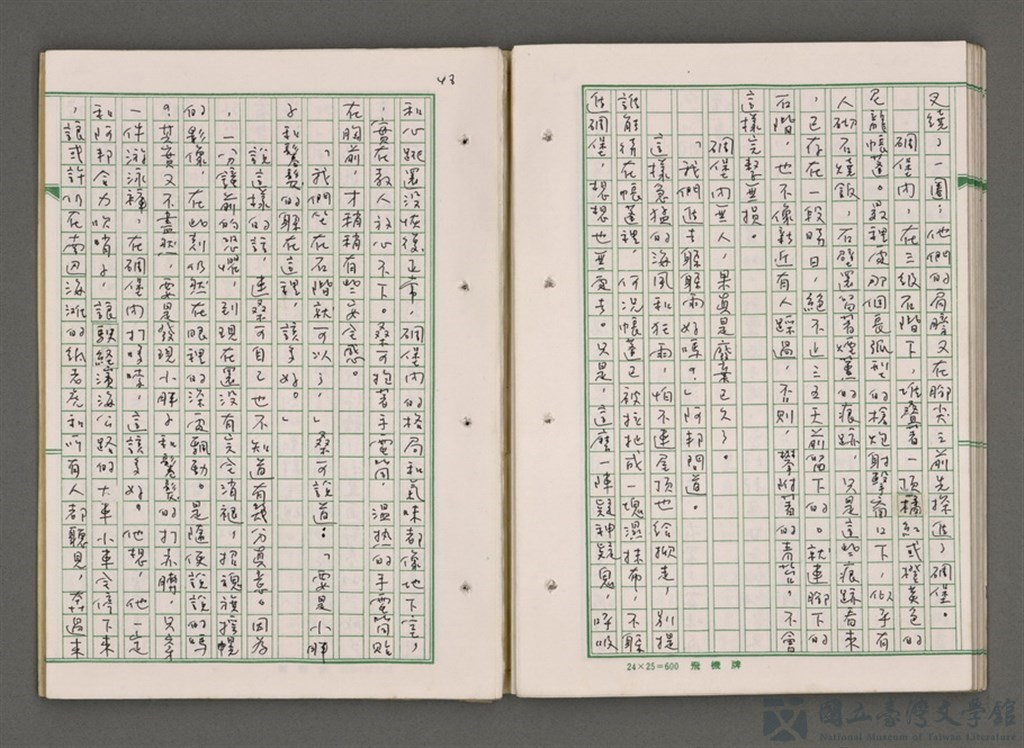 又繞了一圈；他們的肩膀又在腳尖之前先探進了碉堡。
碉堡內，在三級石階下，堆疊著一頂橘紅或橙黃色的
尼龍帳蓬。最裡邊那個長弧型的槍炮射擊窗口下，似乎有
人砌石燒飯，石壁還留著煙薰的痕跡，只是這些痕跡看來
，已存在一段時日，絕不近三五天前留下的。就連腳下的
石階，也不像新近有人踩過，否則，攀附著的青苔，不會
這樣完整無損。
碉堡內無人，果真是廢棄已久了。
「我們進去躲躲雨好嗎？」阿邦問道。
這樣急猛的海風和狂雨，怕不連屋頂也給掀走，別提
誰能待在帳蓬裡，何況帳蓬已被拉扯成一塊濕抹布，不躲
進碉堡，想想也無處去。只是，這麼一陣疑神疑鬼，呼吸
24×25=600 飛機牌
43
和心跳還沒恢復正常，碉堡內的格局和氣味都像地下室，
實在教人放心不下。桑可抱著手電筒，溫熱的手電筒貼
在胸前，才稍稍有些安全感。
「我們坐在石階就可以了，」桑可說道：「要是小胖
子和鬈髮的躲在這裡，該多好。」
說這樣的話，連桑可自己也不知道有幾分真意。因為
，一分鐘前的恐懼，到現在還沒有完全消褪，招魂旗撐幌
的影像，在此刻仍然在眼裡的深處飄動。是隨便說說的嗎
？其實又不盡然，要是發現小胖子和鬈髮的打赤膊，只穿
一件游泳褲，在碉堡內打哆嗦，這該多好。他想，他一定
和阿邦合力吹哨子，讓駛經濱海公路的大車小車全停下來
，讓或許仍在南迴海漄的紙老虎和所有人都聽見，奔過來
國立臺灣文學館
National Museum of Taiwan Literature